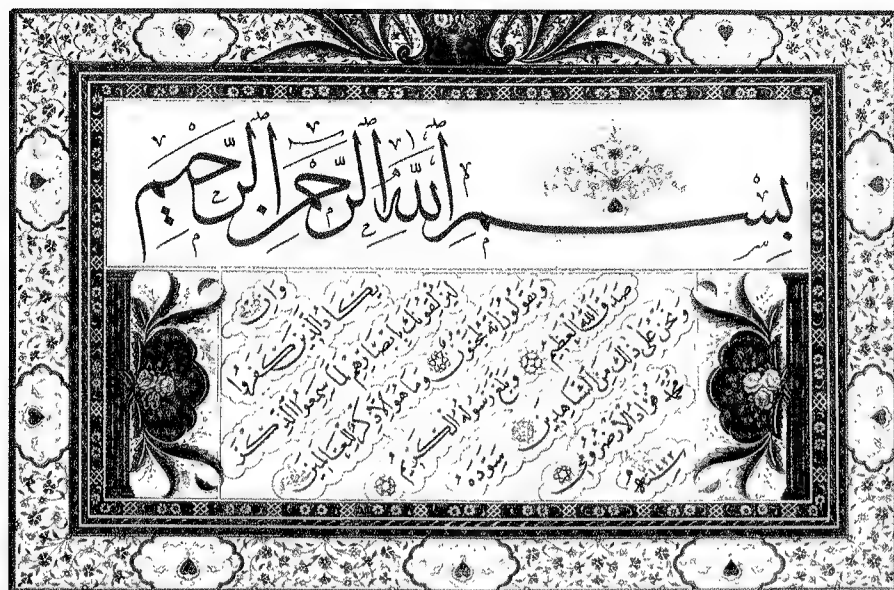 بِسْمِ اللّٰهِ الرَّحْمٰنِ الرَّحِيمِ
وَإِن
يَكَادُ الَّذِينَ كَفَرُوا
لَيُزْلِقُونَكَ بِأَبْصَارِهِمْ لَمَّا سَمِعُوا الذِّكْرَ
وَيَقُولُونَ إِنَّهُ لَمَجْنُونٌ وَمَا هُوَ إِلَّا ذِكْرٌ لِلْعَالَمِينَ
صَدَقَ اللّٰهُ الْعَظِيمُ وَبَلَّغَ رَسُولُهُ الْكَرِيمُ
وَنَحْنُ عَلَى ذَلِكَ مِنَ الشَّاهِدِينَ سَوَّدَهُ
محمد الأرضرومي